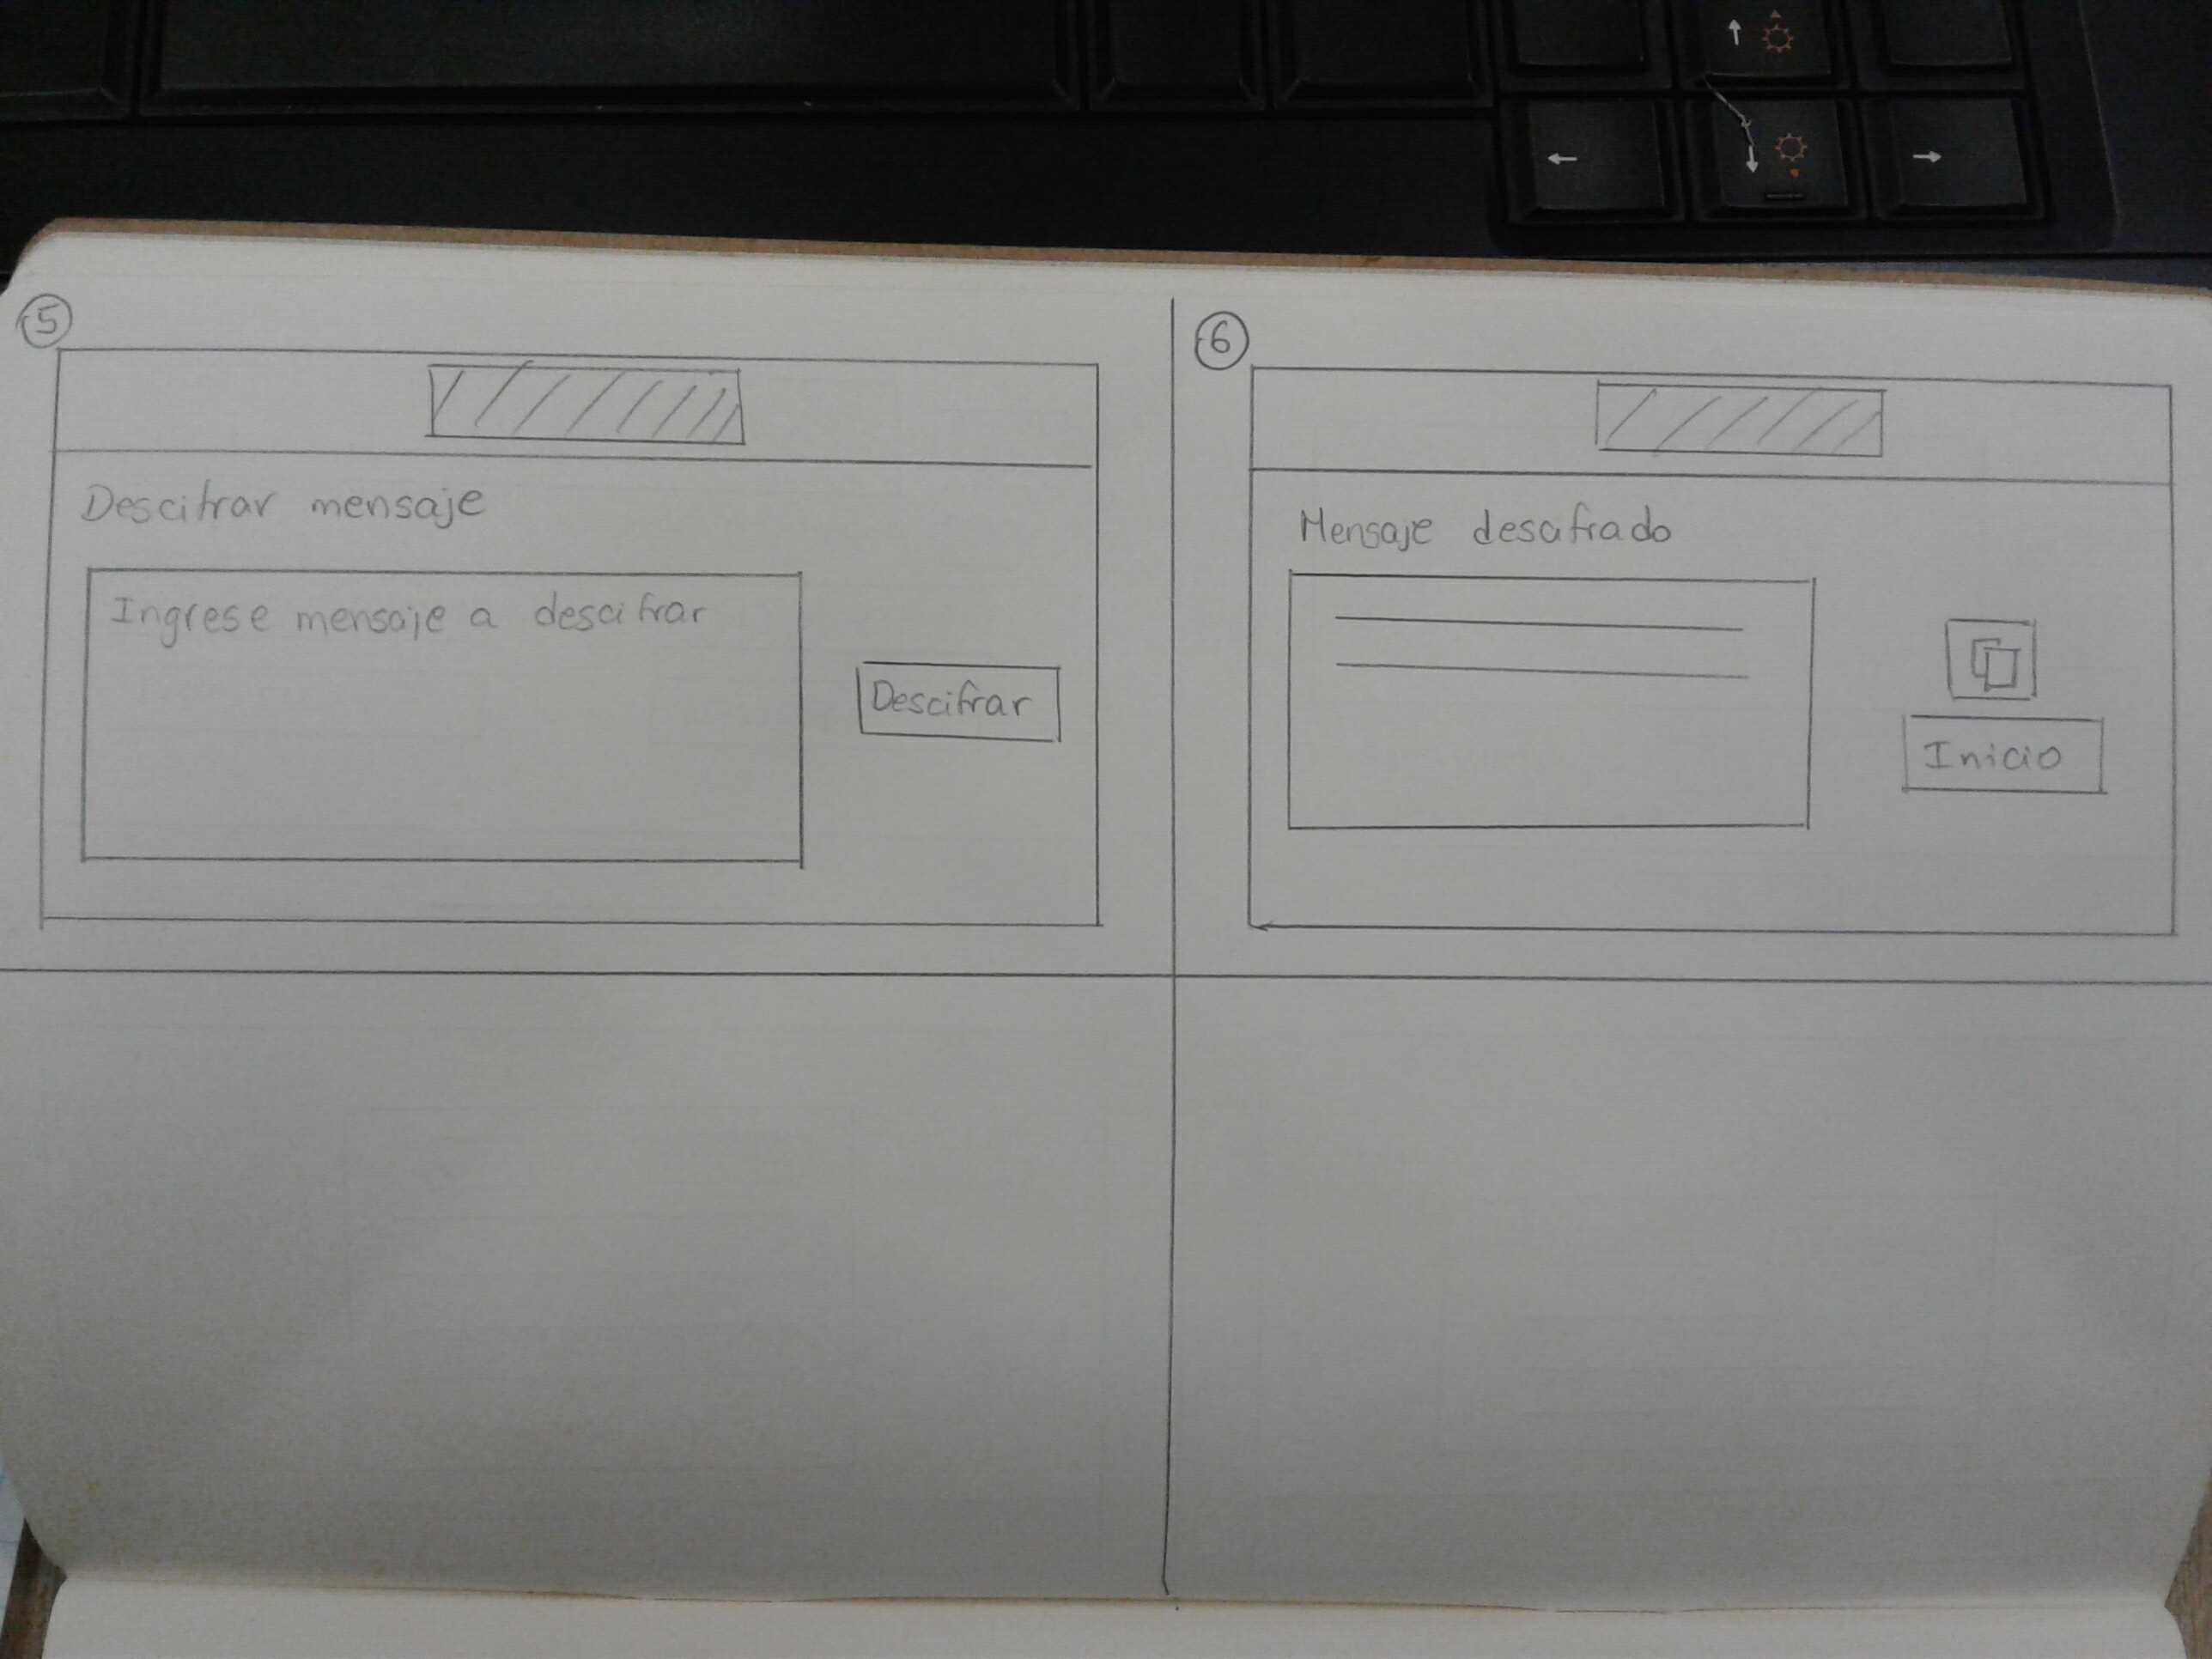 5
Descifrar mensaje
Ingrese mensaje a descifrar
Descifrar
6
Mensaje descifrado
Inicio